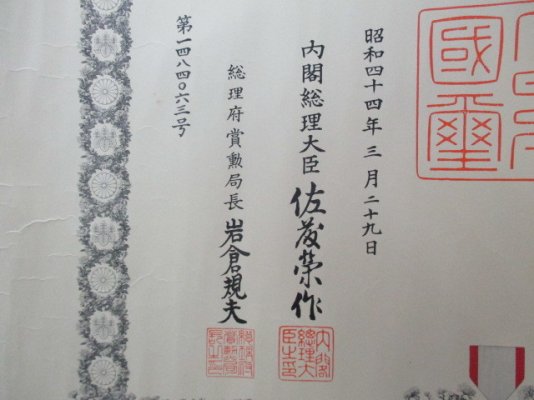 昭和四十四年三月二十九日
内閣総理大臣 佐藤榮作
総理府賞勲局長 岩倉規夫
第一四八四〇六三号
國璽
内閣總理大臣之印